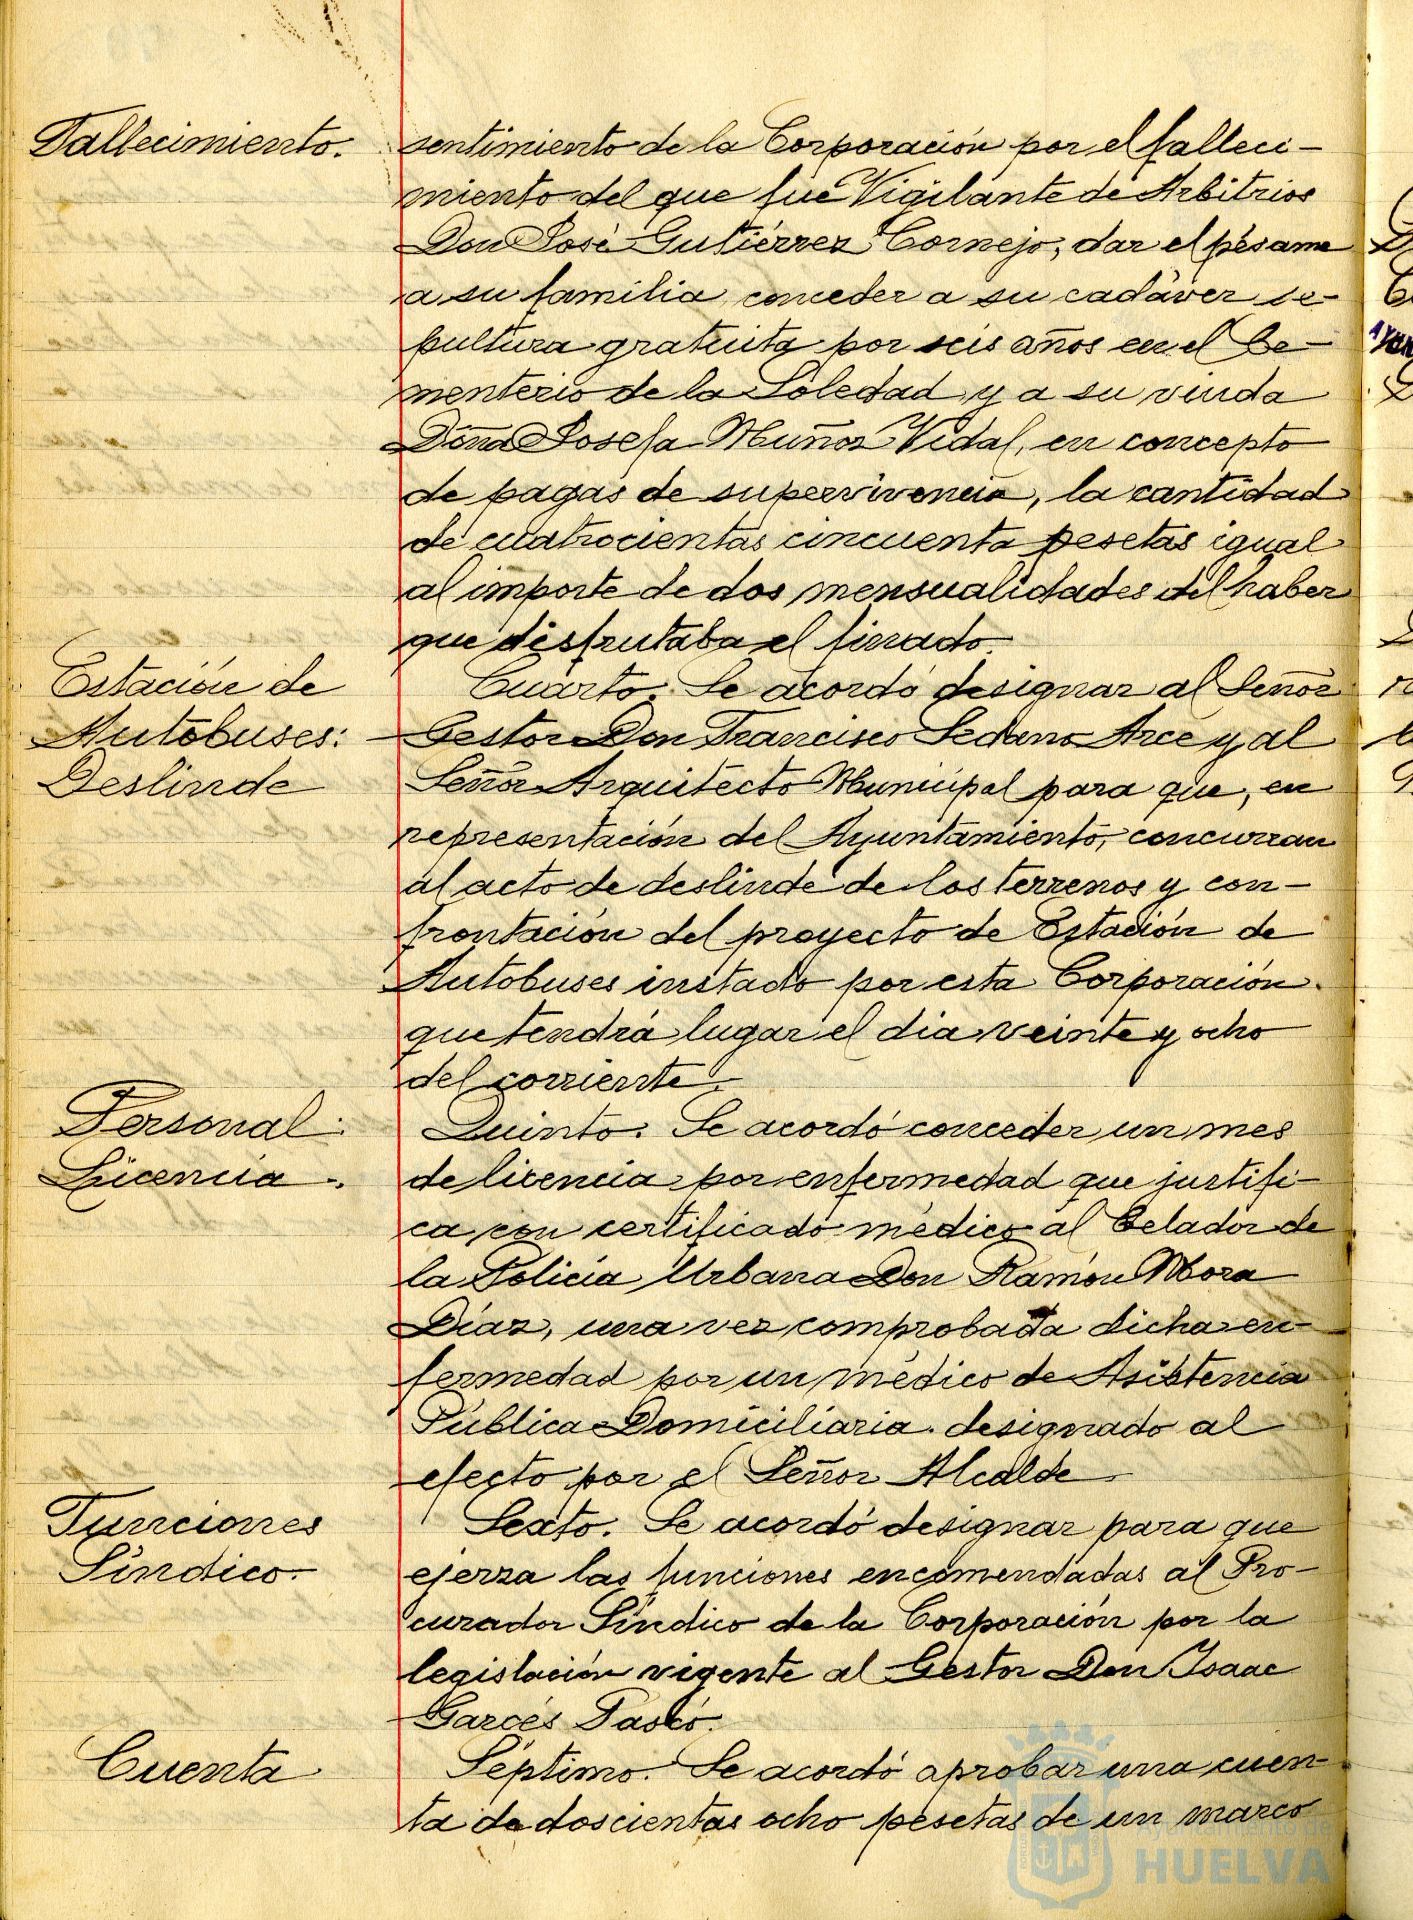 Fallecimiento.
sentimiento de la Corporación por el falleci-
miento del que fue Vigilante de Arbitrios
Don José Gutiérrez Cornejo, dar el pésame
a su familia conceder a su cadáver se-
pultura gratuita por seis años en el Ce-
menterio de la Soledad y a su viuda
Doña Josefa Muñoz Vidal, en concepto
de pagas de supervivencia, la cantidad
de cuatrocientas cincuenta pesetas igual
al importe de dos mensualidades del haber
que disfrutaba el finado.
Estación de
Autobuses:
Deslinde
Cuarto. Se acordó designar al Señor
Gestor Don Francisco Sedano Arce y al
Señor Arquitecto Municipal para que, en
representación del Ayuntamiento, concurran
al acto de deslinde de los terrenos y con-
frontación del proyecto de Estación de
Autobuses instado por esta Corporación.
que tendrá lugar el dia veinte y ocho
del corriente.
Personal:
Licencia.
Quinto. Se acordó conceder un mes
de licencia por enfermedad que justifi-
ca con certificado médico al Celador de
la Policía Urbana Don Ramón Mora
Díaz, una vez comprobada dicha en-
fermedad por un médico de Asistencia
Pública Domiciliaria designado al
efecto por el Señor Alcalde
Funciones
Síndico.
Sexto. Se acordó designar para que
ejerza las funciones encomendadas al Pro-
curador Síndico de la Corporación por la
legislación vigente al Gestor Don Isaac
Garcés Pascó.
Cuenta
Séptimo. Se acordó aprobar una cuen-
ta de doscientas ocho pesetas de un marco
Ayuntamiento de
HUELVA